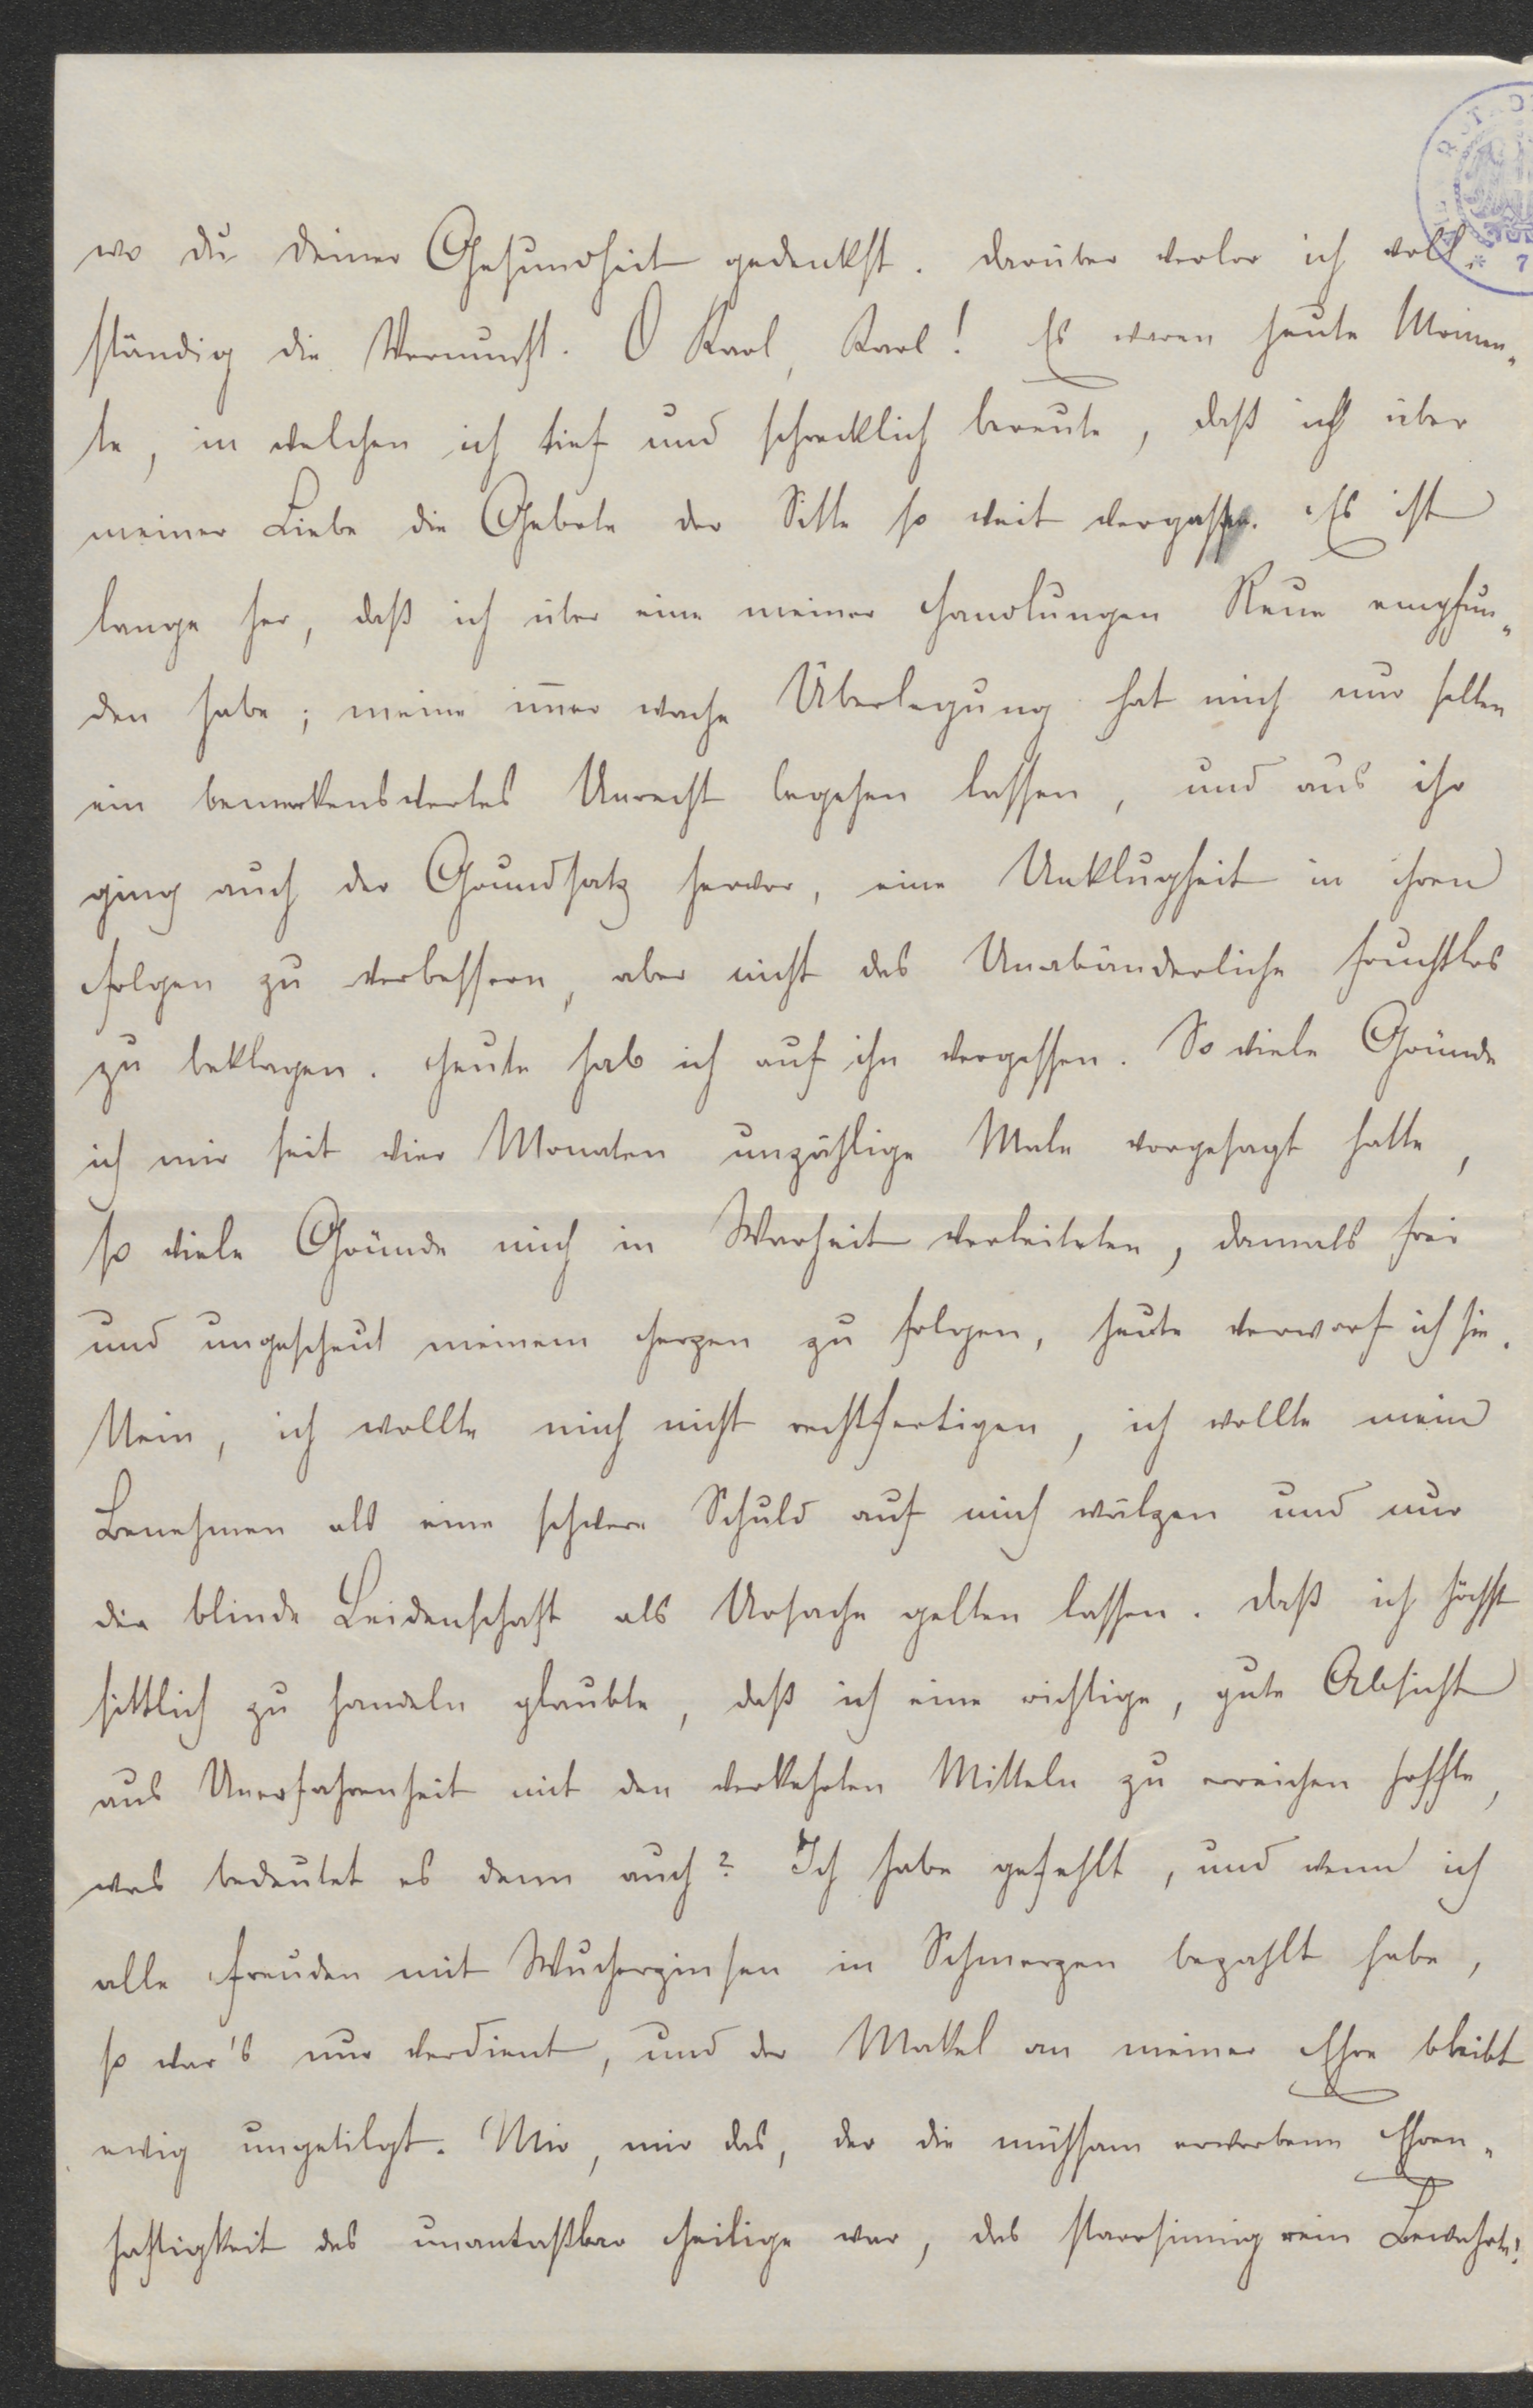 wo du deiner Gesundheit gedenkst. Darüber verlor ich voll-
ständig die Vernunft. O Karl, Karl! Es waren heute Momen-
te, in welchen ich tief und schrecklich bereute, daß ich über
meiner Liebe die Gebote der Sitte so weit vergaß. Es ist
lange her, daß ich über eine meiner Handlungen Reue empfun-
den habe; meine im̅er wache Überlegung hat mich nur selten
ein bemerkenswertes Unrecht begehen lassen, und aus ihr
ging auch der Grundsatz hervor, eine Unklugheit in ihren
Folgen zu verbessern, aber nicht das Unabänderliche fruchtlos
zu beklagen. Heute hab ich auf ihn vergessen. So viele Gründe
ich mir seit vier Monaten unzählige Male vorgesagt hatte,
so viele Gründe mich in Warheit verleiteten, damals frei
und ungescheut meinem Herzen zu folgen, heute verwarf ich sie.
Nein, ich wollte mich nicht rechtfertigen, ich wollte mein
Benehmen als eine schwere Schuld auf mich wälzen und nur
die blinde Leidenschaft als Ursache gelten lassen. Daß ich höchst
sittlich zu handeln glaubte, daß ich eine richtige, gute Absicht
aus Unerfahrenheit mit den verkehrten Mitteln zu erreichen hoffte,
was bedeutet es denn auch? Ich habe gefehlt, und wenn ich
alle Freuden mit Wucherzinsen in Schmerzen bezahlt habe,
so war's nur verdient, und der Makel an meiner Ehre bleibt
ewig ungetilgt. Mir, mir das, der die mühsam erworbene Ehren-
haftigkeit das unantastbar Heilige war, das starrsinnig rein Bewahrte!